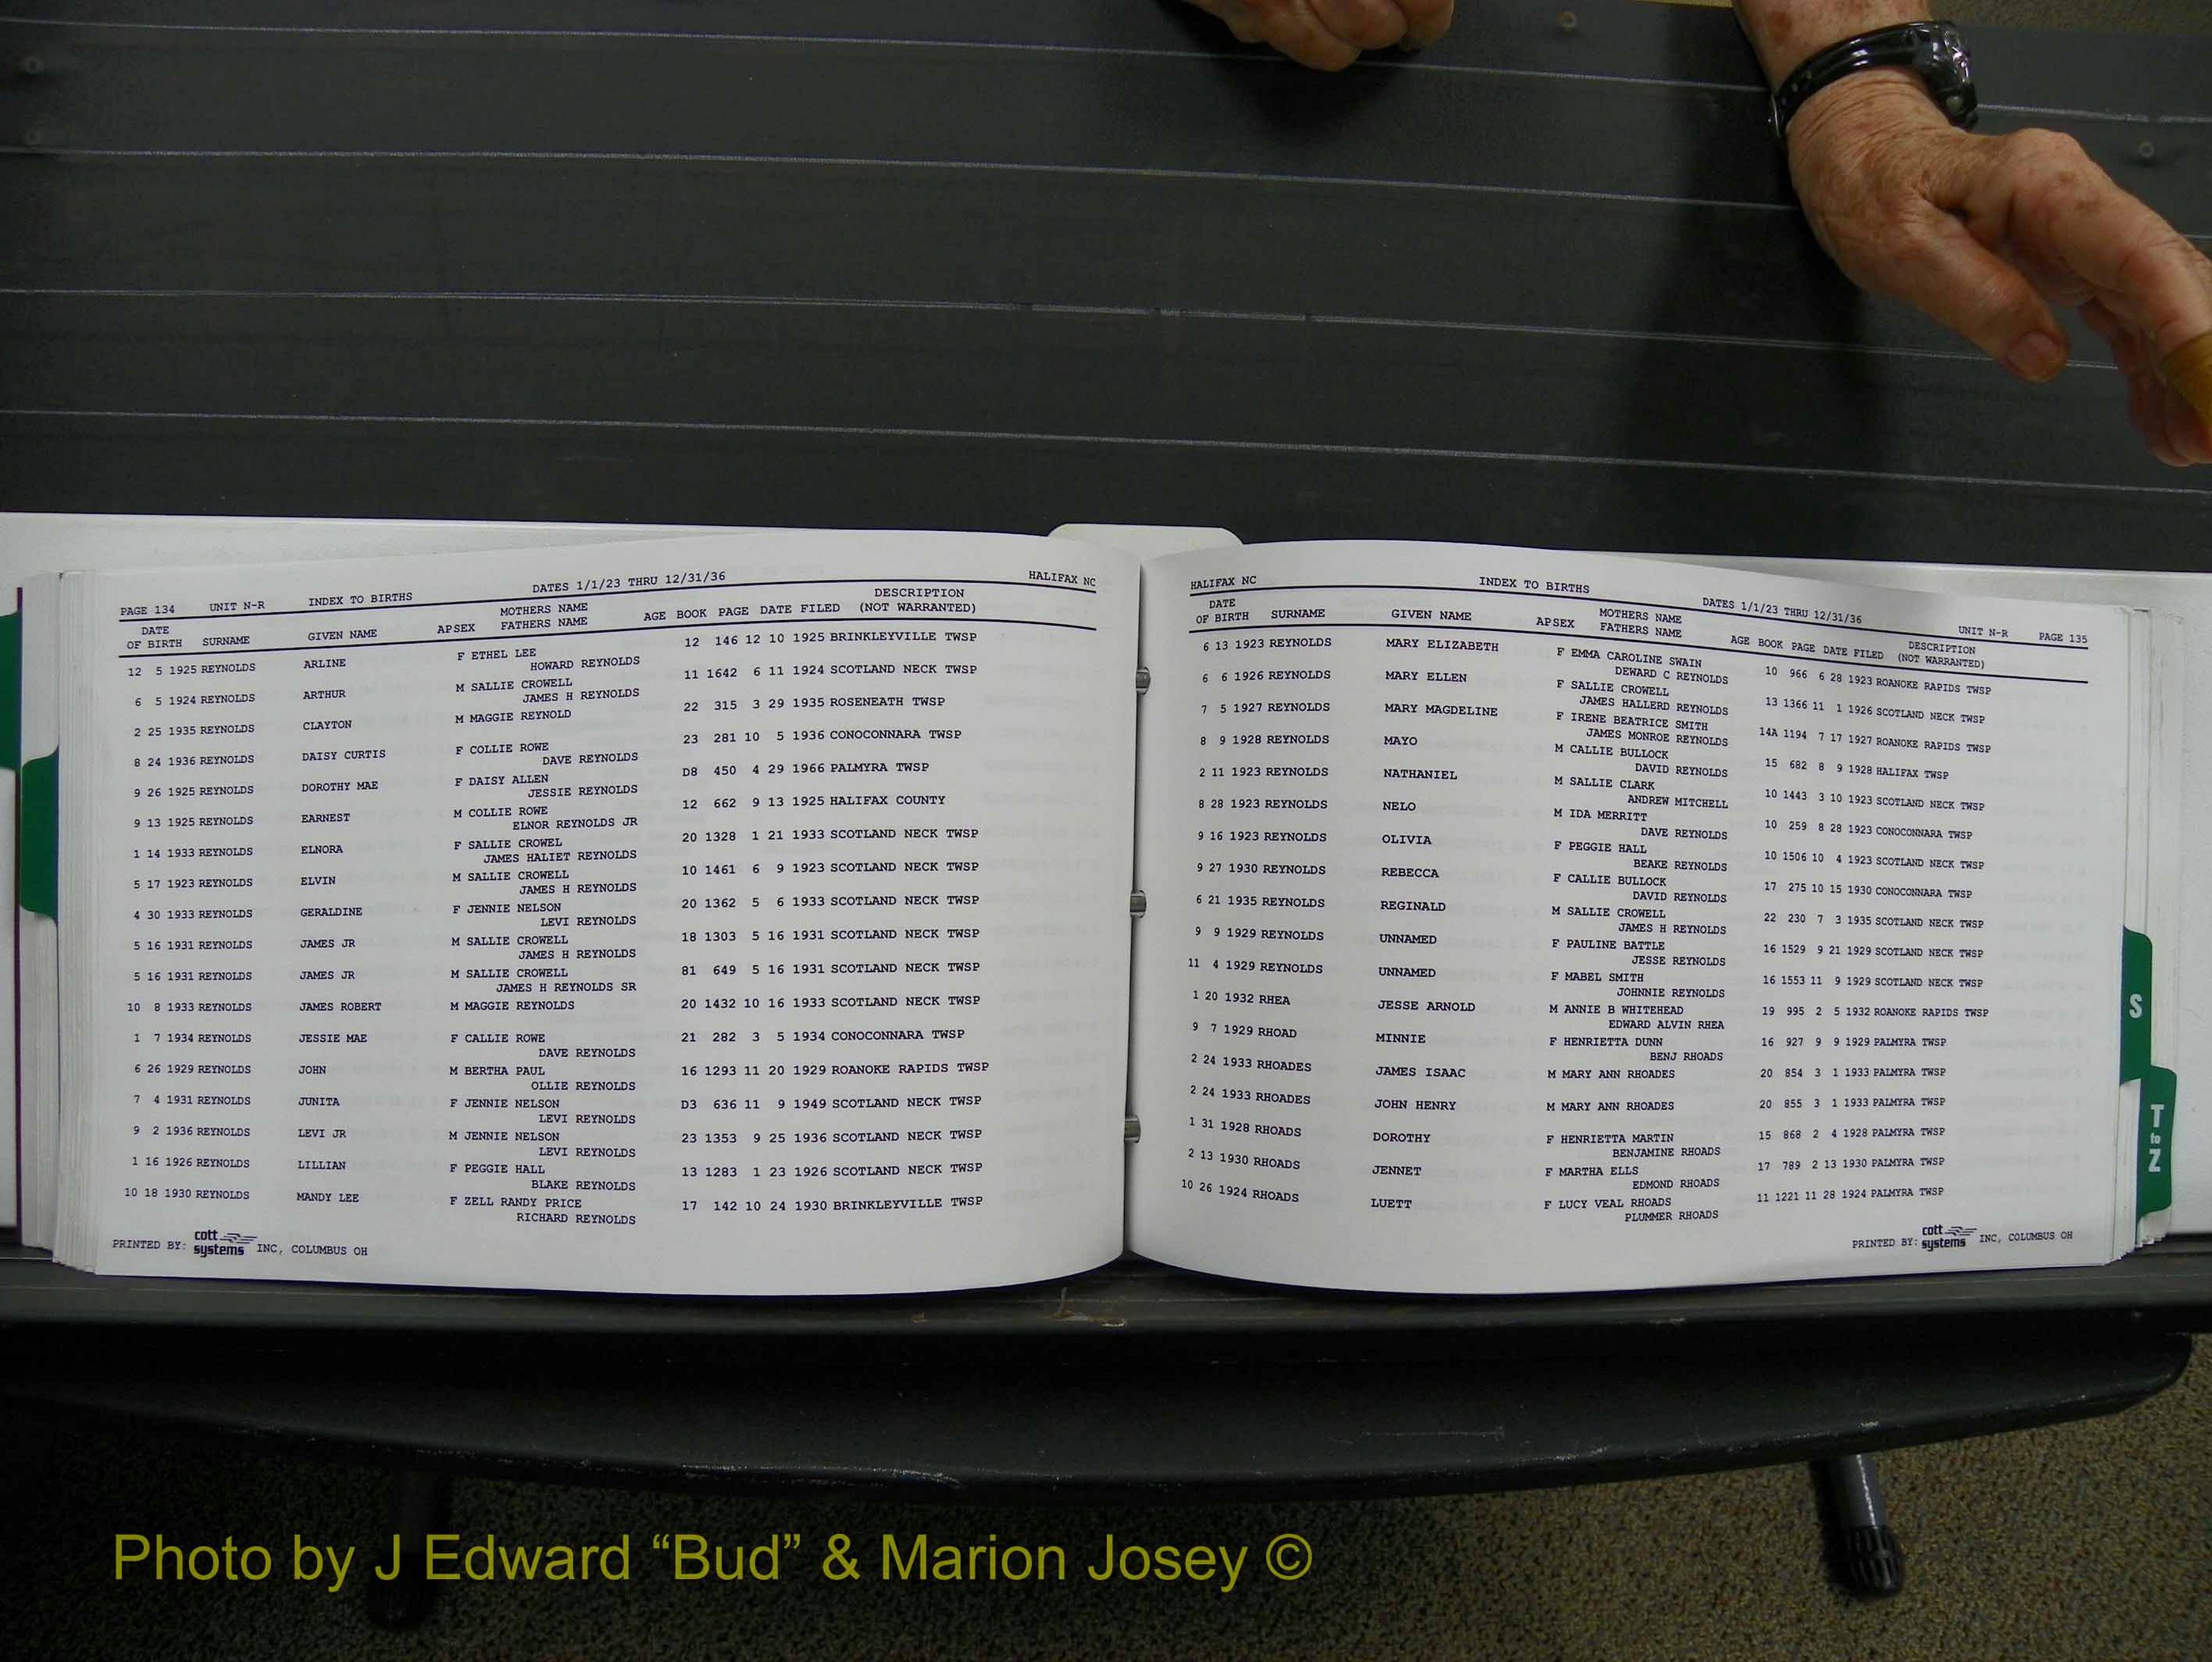 PAGE 134 UNIT N-R INDEX TO BIRTHS DATES 1/1/23 THRU 12/31/36 HALIFAX NC
DATE OF BIRTH SURNAME GIVEN NAME APSEX MOTHERS NAME FATHERS NAME AGE BOOK PAGE DATE FILED DESCRIPTION (NOT WARRANTED)
12 5 1925 REYNOLDS ARLINE F ETHEL LEE 12 146 12 10 1925 BRINKLEYVILLE TWSP
HOWARD REYNOLDS
6 5 1924 REYNOLDS ARTHUR M SALLIE CROWELL 11 1642 6 11 1924 SCOTLAND NECK TWSP
JAMES H REYNOLDS
2 25 1935 REYNOLDS CLAYTON M MAGGIE REYNOLD 22 315 3 29 1935 ROSENEATH TWSP
8 24 1936 REYNOLDS DAISY CURTIS F COLLIE ROWE 23 281 10 5 1936 CONOCONNARA TWSP
DAVE REYNOLDS
9 26 1925 REYNOLDS DOROTHY MAE F DAISY ALLEN D8 450 4 29 1966 PALMYRA TWSP
JESSIE REYNOLDS
9 13 1925 REYNOLDS EARNEST M COLLIE ROWE 12 662 9 13 1925 HALIFAX COUNTY
ELNOR REYNOLDS JR
1 14 1933 REYNOLDS ELNORA F SALLIE CROWEL 20 1328 1 21 1933 SCOTLAND NECK TWSP
JAMES HALIET REYNOLDS
5 17 1923 REYNOLDS ELVIN M SALLIE CROWELL 10 1461 6 9 1923 SCOTLAND NECK TWSP
JAMES H REYNOLDS
4 30 1933 REYNOLDS GERALDINE F JENNIE NELSON 20 1362 5 6 1933 SCOTLAND NECK TWSP
LEVI REYNOLDS
5 16 1931 REYNOLDS JAMES JR M SALLIE CROWELL 18 1303 5 16 1931 SCOTLAND NECK TWSP
JAMES H REYNOLDS
5 16 1931 REYNOLDS JAMES JR M SALLIE CROWELL 81 649 5 16 1931 SCOTLAND NECK TWSP
JAMES H REYNOLDS SR
10 8 1933 REYNOLDS JAMES ROBERT M MAGGIE REYNOLDS 20 1432 10 16 1933 SCOTLAND NECK TWSP
1 7 1934 REYNOLDS JESSIE MAE F CALLIE ROWE 21 282 3 5 1934 CONOCONNARA TWSP
DAVE REYNOLDS
6 26 1929 REYNOLDS JOHN M BERTHA PAUL 16 1293 11 20 1929 ROANOKE RAPIDS TWSP
OLLIE REYNOLDS
7 4 1931 REYNOLDS JUNITA F JENNIE NELSON D3 636 11 9 1949 SCOTLAND NECK TWSP
LEVI REYNOLDS
9 2 1936 REYNOLDS LEVI JR M JENNIE NELSON 23 1353 9 25 1936 SCOTLAND NECK TWSP
LEVI REYNOLDS
1 16 1926 REYNOLDS LILLIAN F PEGGIE HALL 13 1283 1 23 1926 SCOTLAND NECK TWSP
BLAKE REYNOLDS
10 18 1930 REYNOLDS MANDY LEE F ZELL RANDY PRICE 17 142 10 24 1930 BRINKLEYVILLE TWSP
RICHARD REYNOLDS
PRINTED BY: cott systems INC, COLUMBUS OH
HALIFAX NC INDEX TO BIRTHS DATES 1/1/23 THRU 12/31/36 UNIT N-R PAGE 135
DATE OF BIRTH SURNAME GIVEN NAME APSEX MOTHERS NAME FATHERS NAME AGE BOOK PAGE DATE FILED DESCRIPTION (NOT WARRANTED)
6 13 1923 REYNOLDS MARY ELIZABETH F EMMA CAROLINE SWAIN 10 966 6 28 1923 ROANOKE RAPIDS TWSP
DEWARD C REYNOLDS
6 6 1926 REYNOLDS MARY ELLEN F SALLIE CROWELL 13 1366 11 1 1926 SCOTLAND NECK TWSP
JAMES HALLERD REYNOLDS
7 5 1927 REYNOLDS MARY MAGDELINE F IRENE BEATRICE SMITH 14A 1194 7 17 1927 ROANOKE RAPIDS TWSP
JAMES MONROE REYNOLDS
8 9 1928 REYNOLDS MAYO M CALLIE BULLOCK 15 682 8 9 1928 HALIFAX TWSP
DAVID REYNOLDS
2 11 1923 REYNOLDS NATHANIEL M SALLIE CLARK 10 1443 3 10 1923 SCOTLAND NECK TWSP
ANDREW MITCHELL
8 28 1923 REYNOLDS NELO M IDA MERRITT 10 259 8 28 1923 CONOCONNARA TWSP
DAVE REYNOLDS
9 16 1923 REYNOLDS OLIVIA F PEGGIE HALL 10 1506 10 4 1923 SCOTLAND NECK TWSP
BEAKE REYNOLDS
9 27 1930 REYNOLDS REBECCA F CALLIE BULLOCK 17 275 10 15 1930 CONOCONNARA TWSP
DAVID REYNOLDS
6 21 1935 REYNOLDS REGINALD M SALLIE CROWELL 22 230 7 3 1935 SCOTLAND NECK TWSP
JAMES H REYNOLDS
9 9 1929 REYNOLDS UNNAMED F PAULINE BATTLE 16 1529 9 21 1929 SCOTLAND NECK TWSP
JESSE REYNOLDS
11 4 1929 REYNOLDS UNNAMED F MABEL SMITH 16 1553 11 9 1929 SCOTLAND NECK TWSP
JOHNNIE REYNOLDS
1 20 1932 RHEA JESSE ARNOLD M ANNIE B WHITEHEAD 19 995 2 5 1932 ROANOKE RAPIDS TWSP
EDWARD ALVIN RHEA
9 7 1929 RHOAD MINNIE F HENRIETTA DUNN 16 927 9 9 1929 PALMYRA TWSP
BENJ RHOADS
2 24 1933 RHOADES JAMES ISAAC M MARY ANN RHOADES 20 854 3 1 1933 PALMYRA TWSP
2 24 1933 RHOADES JOHN HENRY M MARY ANN RHOADES 20 855 3 1 1933 PALMYRA TWSP
1 31 1928 RHOADS DOROTHY F HENRIETTA MARTIN 15 868 2 4 1928 PALMYRA TWSP
BENJAMINE RHOADS
2 13 1930 RHOADS JENNET F MARTHA ELLS 17 789 2 13 1930 PALMYRA TWSP
EDMOND RHOADS
10 26 1924 RHOADS LUETT F LUCY VEAL RHOADS 11 1221 11 28 1924 PALMYRA TWSP
PLUMMER RHOADS
PRINTED BY: cott systems INC, COLUMBUS OH
S
T to Z
Photo by J Edward “Bud” & Marion Josey ©